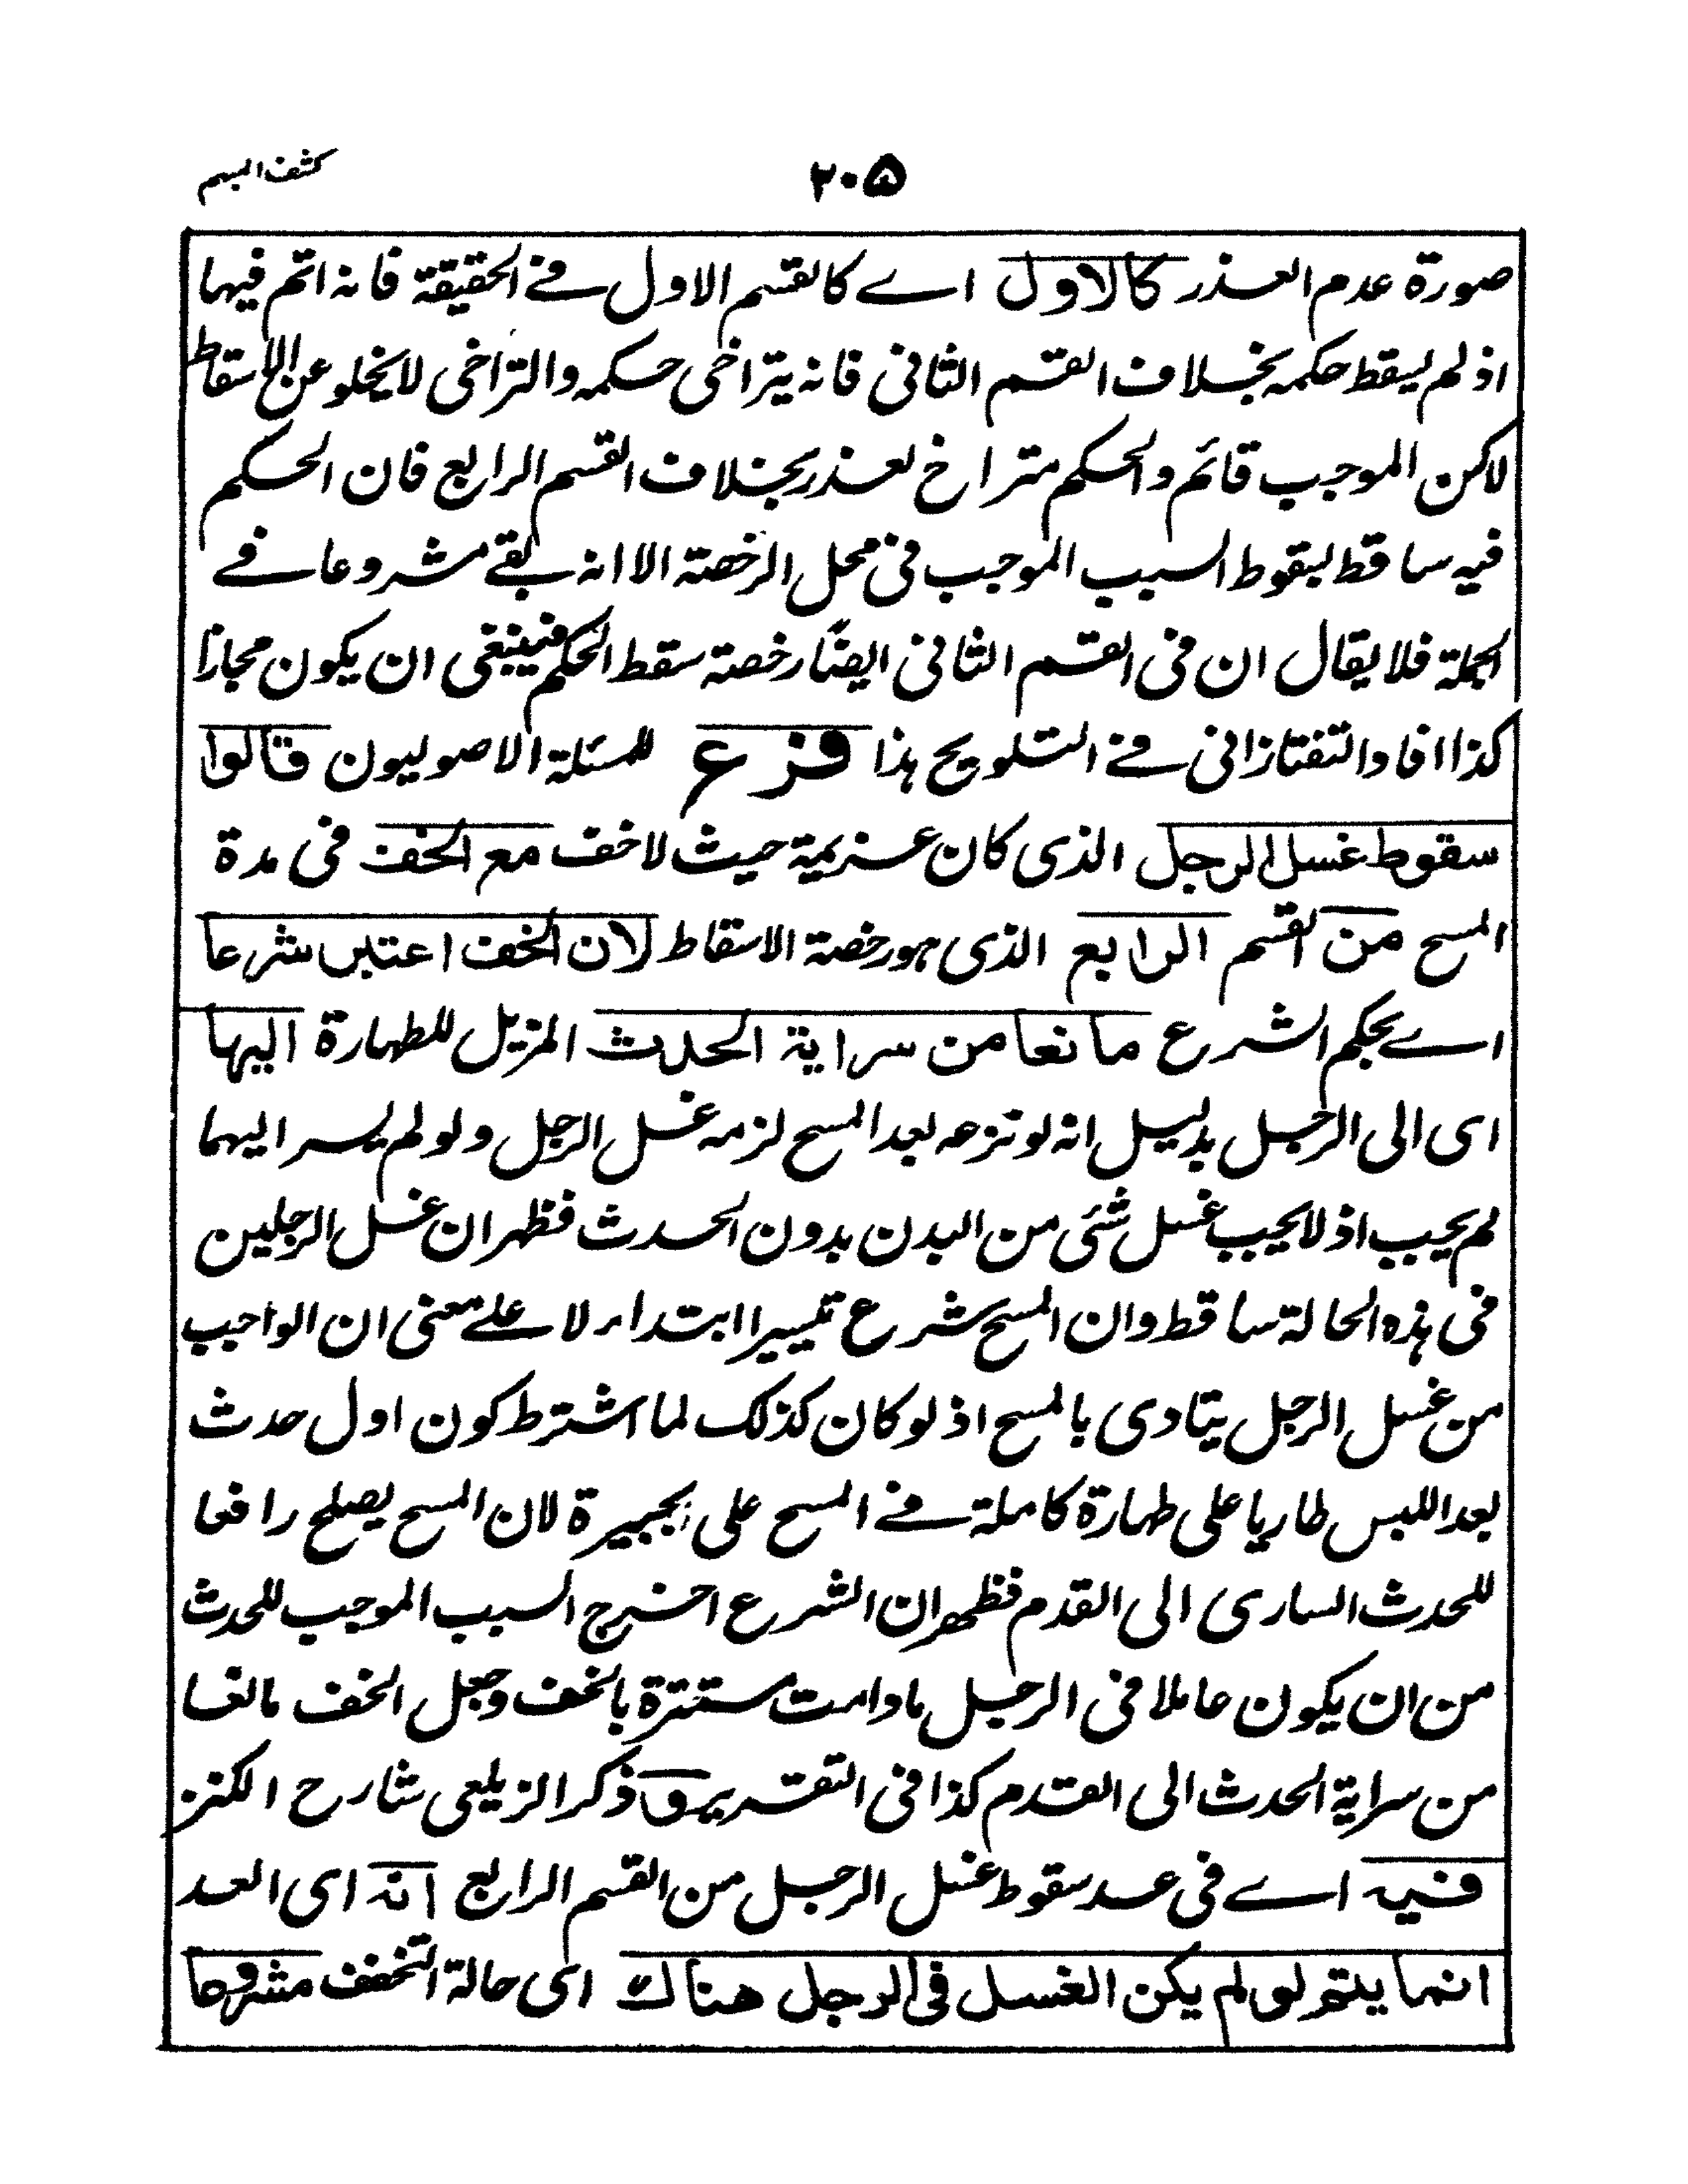 كشف المبهم
٢٠٥
صورة عدم العذر كالاول اے كالقسم الاول فے الحقيقة فانه اتم فيها
اذ لم يسقط حكمه بخلاف القسم الثانى فانه يتراخى حكمه والتراخى لايخلو عن الاسقاط
لاكن الموجب قائم والحكم متراخ لعذر بخلاف القسم الرابع فان الحكم
فيه ساقط بسقوط السبب الموجب فى محل الرخصة الا انه بقے مشروعا فے
الجملة فلا يقال ان فى القسم الثانى ايضًا رخصة سقط الحكم فينبغى ان يكون مجازا
كذا افاد التفتازانى فے التلويح هذا فرع للمسئلة الاصوليون قالوا
سقوط غسل الرجل الذى كان عزيمة حيث لاخف مع الخف فى مدة
المسح من القسم الرابع الذى هو رخصة الاسقاط لان الخف اعتبر شرعا
اے بحكم الشرع مانعا من سراية الحدث المزيل للطهارة اليها
اى الى الرجل بدليل انه لو نزعه بعد المسح لزمه غسل الرجل ولو لم يسر اليهما
لم يجب اذ لايجب غسل شئى من البدن بدون الحدث فظهر ان غسل الرجلين
فى هذه الحالة ساقط وان المسح شرع تيسيرا ابتداء لا علے معنى ان الواجب
من غسل الرجل يتادى بالمسح اذ لو كان كذلك لما اشترط كون اول حدث
بعد اللبس طاريا على طهارة كاملة فے المسح على الجبيرة لان المسح يصلح رافعا
للحدث السارى الى القدم فظهر ان الشرع اخرج السبب الموجب للحدث
من ان يكون عاملا فى الرجل مادامت مستترة بالخف وجعل الخف مانعا
من سراية الحدث الى القدم كذا فى التقرير و ذكر الزيلعى شارح الكنز
فيه اے فى عد سقوط غسل الرجل من القسم الرابع انه اى العد
انما يتم لو لم يكن الغسل فى الرجل هناك اى حالة التخفف مشروعا